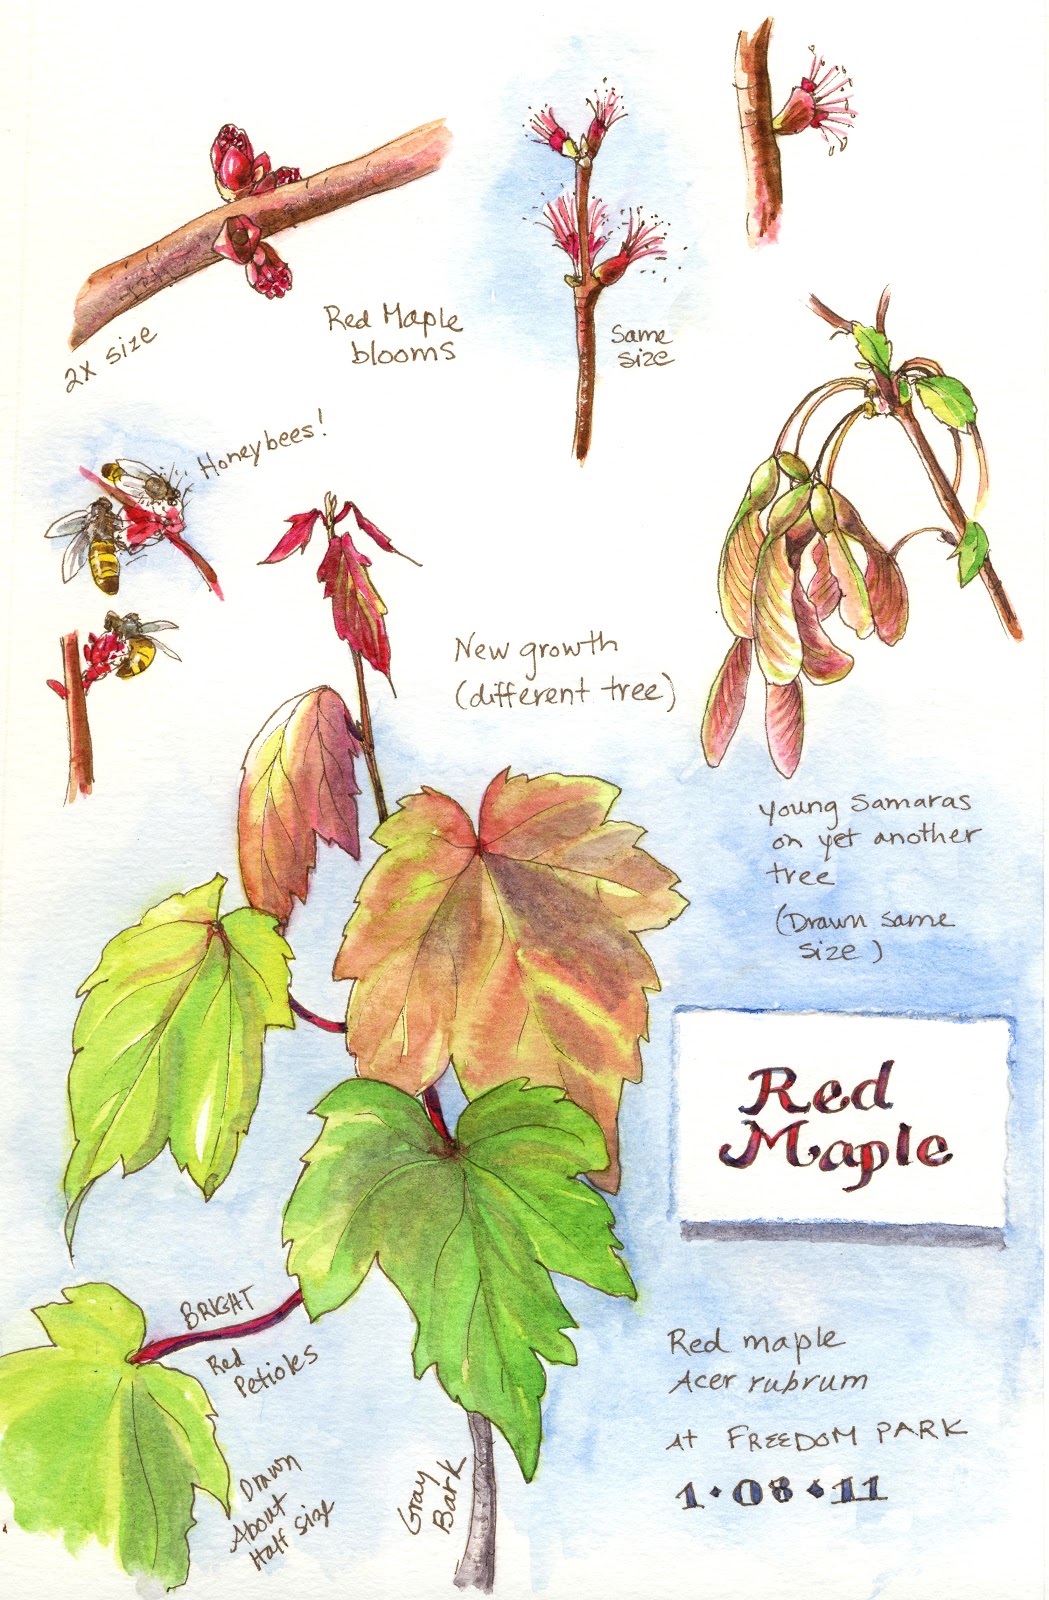 2X size
Red Maple
blooms
Same
size
Honeybees!
New growth
(different tree)
Young Samaras
on yet another
tree
(Drawn same
size)
Red
Maple
BRIGHT
Red
Petioles
Drawn
About
Half size
Gray
Bark
Red maple
Acer rubrum
At FREEDOM PARK
1·08·11